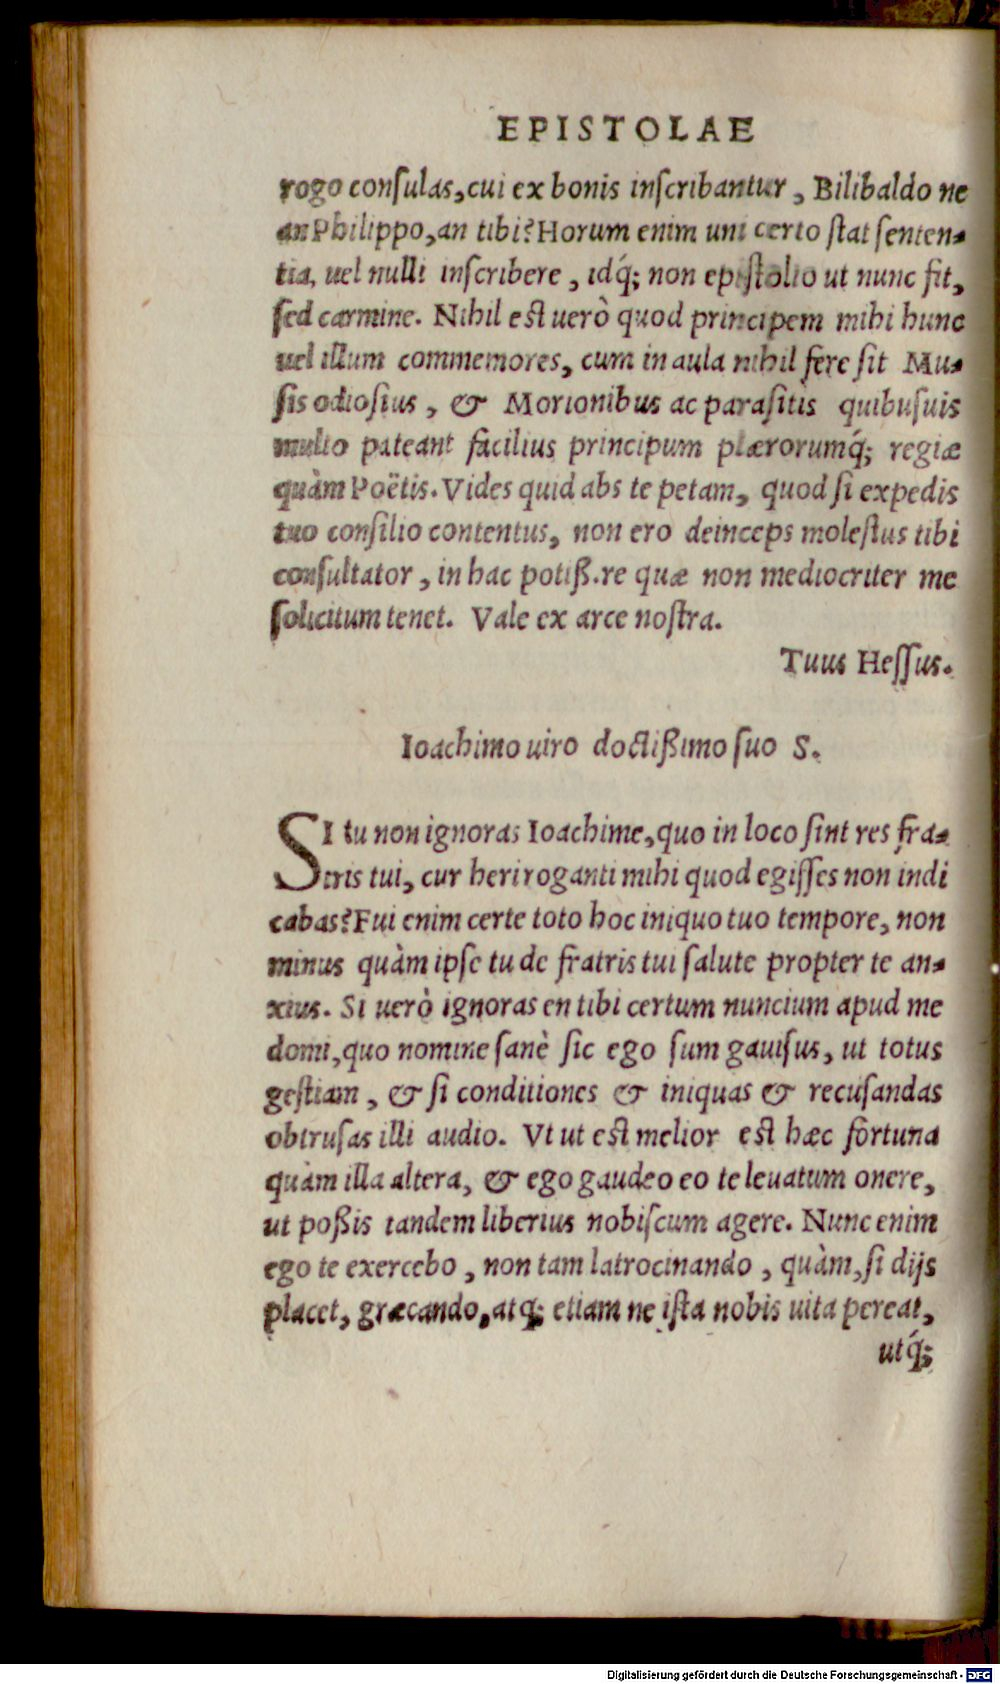 EPISTOLAE
rogo conſulas, cui ex bonis inſcribantur, Bilibaldo ne
an Philippo, an tibi? Horum enim uni certo ſtat ſenten-
tia, uel nulli inſcribere, idq́; non epiſtolio ut nunc fit,
ſed carmine. Nihil eſt uerò quod principem mihi hunc
uel illum commemores, cum in aula nihil fere ſit Mu-
ſis odioſius, & Morionibus ac paraſitis quibuſuis
multo pateant facilius principum plærorumq́; regiæ
quàm Poëtis. Vides quid abs te petam, quod ſi expedis
tuo conſilio contentus, non ero deinceps moleſtus tibi
conſultator, in hac potiß. re quæ non mediocriter me
ſolicitum tenet. Vale ex arce noſtra.
Tuus Heſſus.
Ioachimo uiro doctißimo ſuo S.
SI tu non ignoras Ioachime, quo in loco ſint res fra-
tris tui, cur heri roganti mihi quod egiſſes non indi
cabas? Fui enim certe toto hoc iniquo tuo tempore, non
minus quàm ipſe tu de fratris tui ſalute propter te an-
xius. Si uerò ignoras en tibi certum nuncium apud me
domi, quo nomine ſanè ſic ego ſum gauiſus, ut totus
geſtiam, & ſi conditiones & iniquas & recuſandas
obtruſas illi audio. Vt ut eſt melior eſt hæc fortuna
quàm illa altera, & ego gaudeo eo te leuatum onere,
ut poßis tandem liberius nobiſcum agere. Nunc enim
ego te exercebo, non tam latrocinando, quàm, ſi dijs
placet, græcando, atq; etiam ne iſta nobis uita pereat,
utq́;
Digitalisierung gefördert durch die Deutsche Forschungsgemeinschaft - DFG